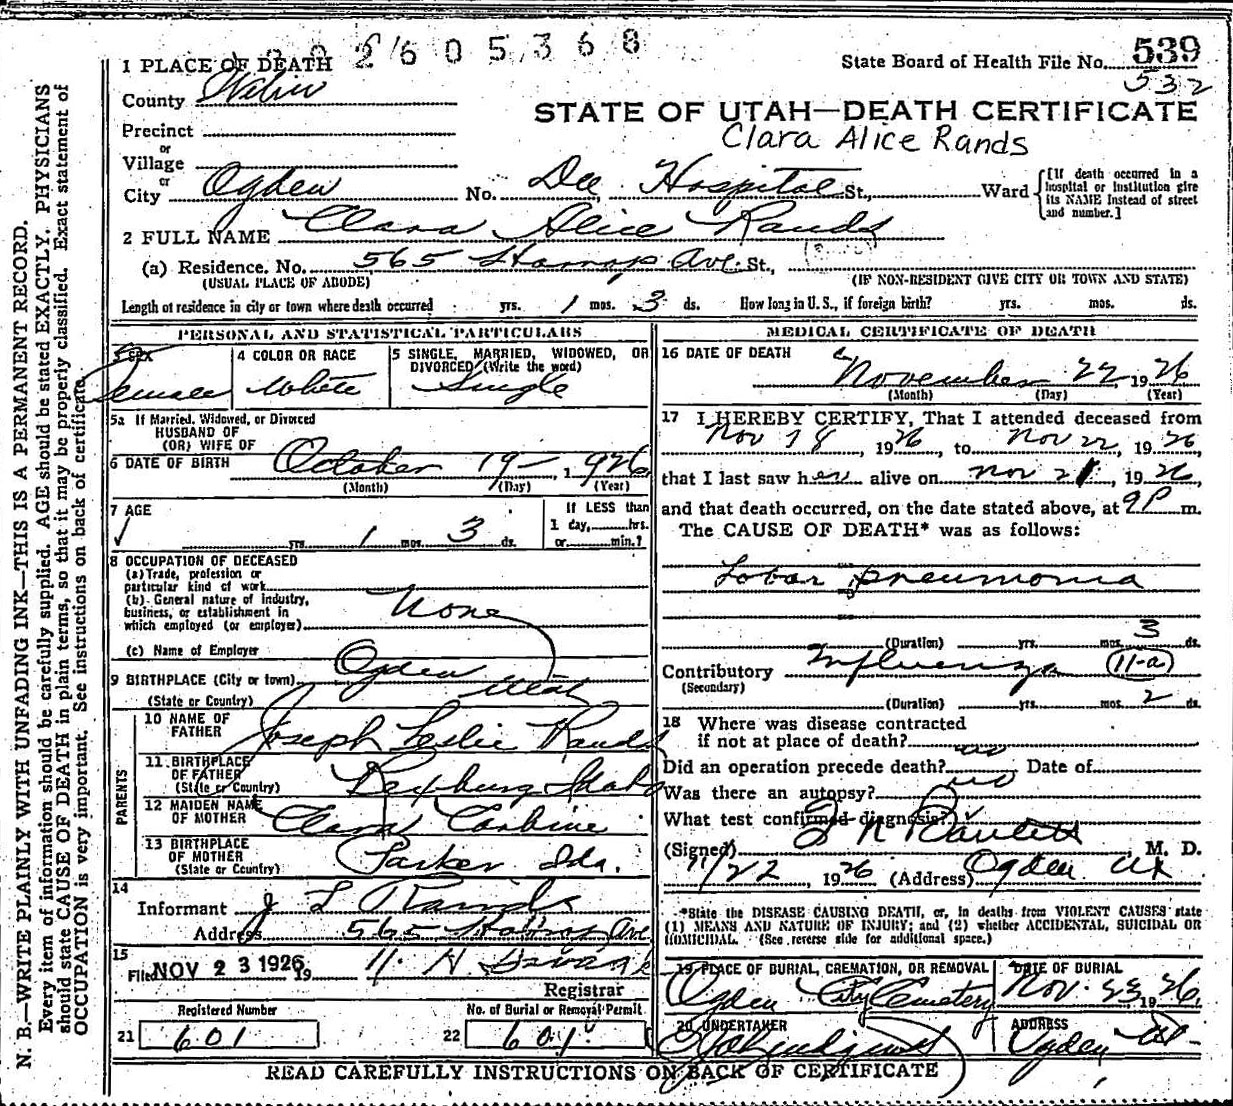 2605368
1 PLACE OF DEATH
State Board of Health File No. 539
532
County Weber
STATE OF UTAH—DEATH CERTIFICATE
Clara Alice Rands
Precinct
or
Village
or
City Ogden No. Dee Hospital St., Ward
[If death occurred in a hospital or institution give its NAME instead of street and number.]
2 FULL NAME Clara Alice Rands
(a) Residence. No. 565 Ave. St.,
(USUAL PLACE OF ABODE) (IF NON-RESIDENT GIVE CITY OR TOWN AND STATE)
Length of residence in city or town where death occurred yrs. 1 mos. 3 ds. How long in U.S., if foreign birth? yrs. mos. ds.
PERSONAL AND STATISTICAL PARTICULARS
3 SEX Female
4 COLOR OR RACE White
5 SINGLE, MARRIED, WIDOWED, OR DIVORCED (Write the word) Single
5a If Married, Widowed, or Divorced
HUSBAND OF
(OR) WIFE OF
6 DATE OF BIRTH October 19 1926
(Month) (Day) (Year)
7 AGE
yrs. 1 mos. 3 ds.
If LESS than
1 day, hrs.
or min.?
8 OCCUPATION OF DECEASED
(a) Trade, profession or
particular kind of work
(b) General nature of industry,
business, or establishment in
which employed (or employer) None
(c) Name of Employer
9 BIRTHPLACE (City or town) Ogden
(State or Country) Utah
PARENTS
10 NAME OF FATHER Joseph Leslie Rands
11 BIRTHPLACE OF FATHER (State or Country) Rexburg Idaho
12 MAIDEN NAME OF MOTHER Clara
13 BIRTHPLACE OF MOTHER (State or Country) Parker Ida.
14
Informant J L Rands
Address 565 Ave
15
Filed NOV 23 1926 19
Registrar
Registered Number
21 601
No. of Burial or Removal Permit
22 601
MEDICAL CERTIFICATE OF DEATH
16 DATE OF DEATH
November 22 1926
(Month) (Day) (Year)
17 I HEREBY CERTIFY, That I attended deceased from
Nov 18 1926 to Nov 22 1926,
that I last saw her alive on Nov 21, 1926,
and that death occurred, on the date stated above, at 9P m.
The CAUSE OF DEATH* was as follows:
Lobar pneumonia
(Duration) yrs. mos. 3 ds.
Contributory Influenza 11-a
(Secondary)
(Duration) yrs. mos. 2 ds.
18 Where was disease contracted
if not at place of death?
Did an operation precede death? no Date of
Was there an autopsy? no
What test confirmed diagnosis?
(Signed) M. D.
11/22, 1926 (Address) Ogden Ut
*State the DISEASE CAUSING DEATH, or, in deaths from VIOLENT CAUSES state
(1) MEANS AND NATURE OF INJURY; and (2) whether ACCIDENTAL, SUICIDAL OR
HOMICIDAL. (See reverse side for additional space.)
19 PLACE OF BURIAL, CREMATION, OR REMOVAL
Ogden City Cemetery
DATE OF BURIAL
Nov. 23 1926.
20 UNDERTAKER
ADDRESS
Ogden Ut
READ CAREFULLY INSTRUCTIONS ON BACK OF CERTIFICATE
N. B.—WRITE PLAINLY WITH UNFADING INK—THIS IS A PERMANENT RECORD.
Every item of information should be carefully supplied. AGE should be stated EXACTLY. PHYSICIANS
should state CAUSE OF DEATH in plain terms, so that it may be properly classified. Exact statement of
OCCUPATION is very important. See instructions on back of certificate.